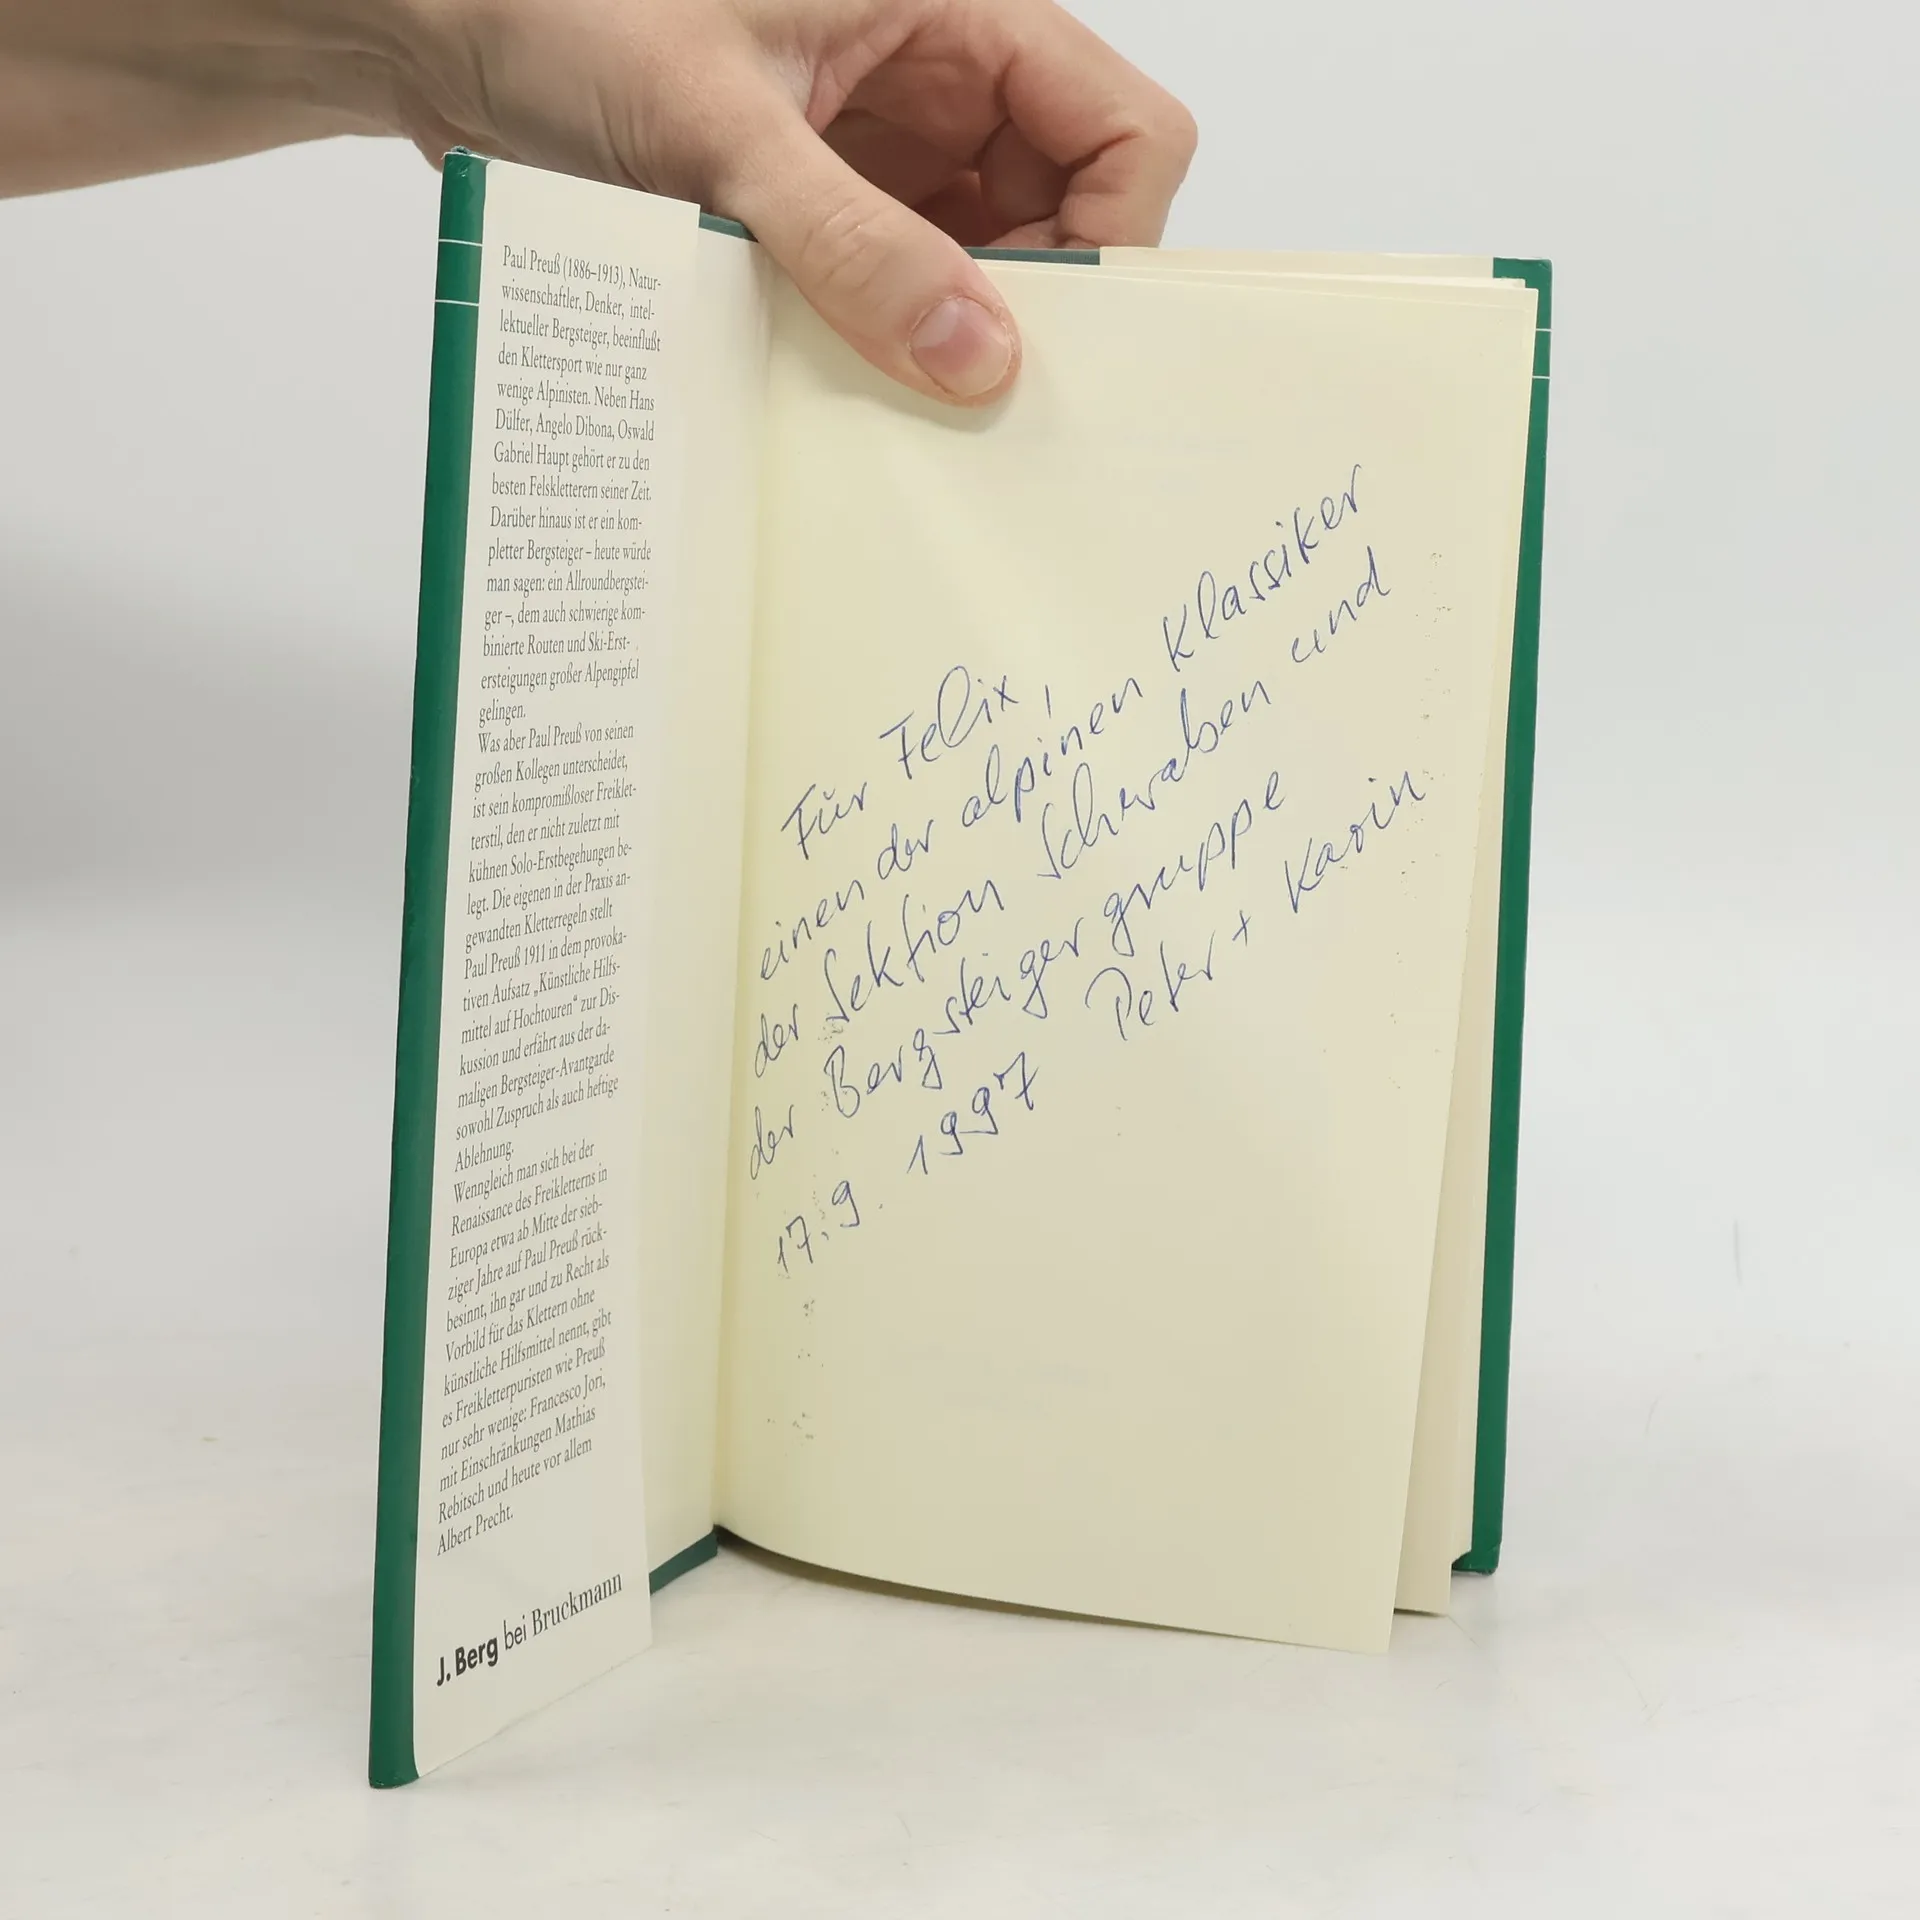 Paul Preuß (1886–1913), Natur-
wissenschaftler, Denker, intel-
lektueller Bergsteiger, beeinflußt
den Klettersport wie nur ganz
wenige Alpinisten. Neben Hans
Dülfer, Angelo Dibona, Oswald
Gabriel Haupt gehört er zu den
besten Felskletterern seiner Zeit.
Darüber hinaus ist er ein kom-
pletter Bergsteiger – heute würde
man sagen: ein Allroundbergstei-
ger –, dem auch schwierige kom-
binierte Routen und Ski-Erst-
ersteigungen großer Alpengipfel
gelingen.
Was aber Paul Preuß von seinen
großen Kollegen unterscheidet,
ist sein kompromißloser Freiklet-
terstil, den er nicht zuletzt mit
kühnen Solo-Erstbegehungen be-
legt. Die eigenen in der Praxis an-
gewandten Kletterregeln stellt
Paul Preuß 1911 in dem provoka-
tiven Aufsatz „Künstliche Hilfs-
mittel auf Hochtouren“ zur Dis-
kussion und erfährt aus der da-
maligen Bergsteiger-Avantgarde
sowohl Zuspruch als auch heftige
Ablehnung.
Wenngleich man sich bei der
Renaissance des Freikletterns in
Europa etwa ab Mitte der sieb-
ziger Jahre auf Paul Preuß rück-
besinnt, ihn gar und zu Recht als
Vorbild für das Klettern ohne
künstliche Hilfsmittel nennt, gibt
es Freikletterpuristen wie Preuß
nur sehr wenige: Francesco Jori,
mit Einschränkungen Mathias
Rebitsch und heute vor allem
Albert Precht.
J. Berg bei Bruckmann
Für Felix,
einen der alpinen Klassiker
der Sektion Schwaben und
der Bergsteigergruppe
17.9. 1997 Peter + Karin